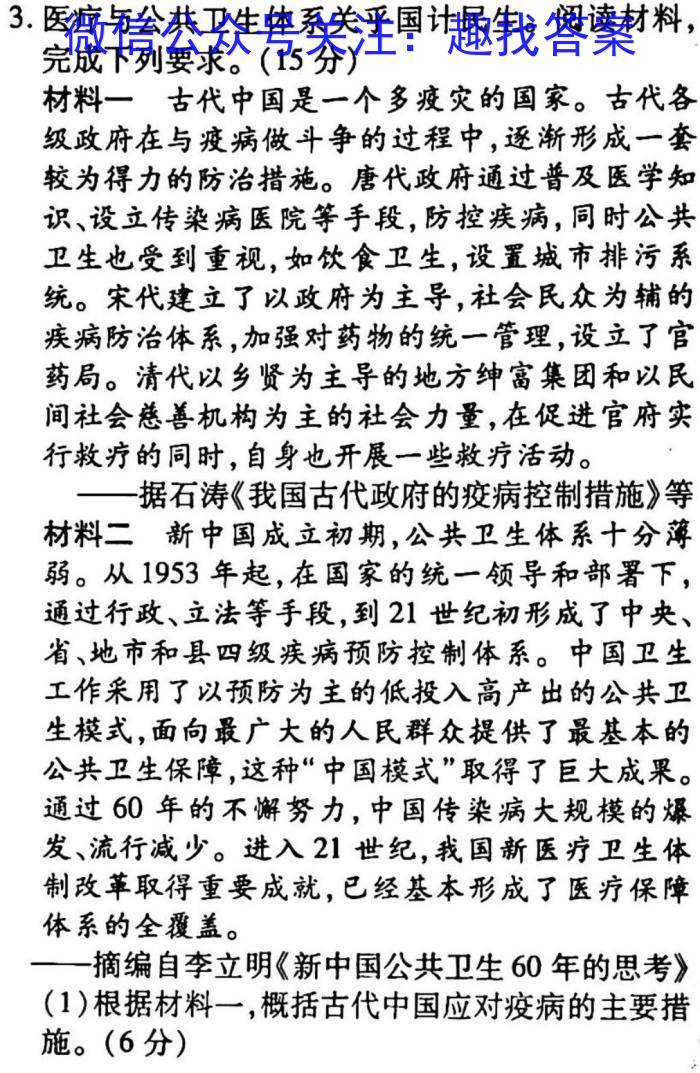 3. 医疗与公共卫生体系关乎国计民生。阅读材料,
微信公众号关注：趣找答案
完成下列要求。(15 分)
材料一 古代中国是一个多疫灾的国家。古代各
级政府在与疫病做斗争的过程中,逐渐形成一套
较为得力的防治措施。唐代政府通过普及医学知
识、设立传染病医院等手段,防控疾病,同时公共
卫生也受到重视,如饮食卫生,设置城市排污系
统。宋代建立了以政府为主导,社会民众为辅的
疾病防治体系,加强对药物的统一管理,设立了官
药局。清代以乡贤为主导的地方绅富集团和以民
间社会慈善机构为主的社会力量,在促进官府实
行救疗的同时,自身也开展一些救疗活动。
——据石涛《我国古代政府的疫病控制措施》等
材料二 新中国成立初期,公共卫生体系十分薄
弱。从 1953 年起,在国家的统一领导和部署下,
通过行政、立法等手段,到 21 世纪初形成了中央、
省、地市和县四级疾病预防控制体系。中国卫生
工作采用了以预防为主的低投入高产出的公共卫
生模式,面向最广大的人民群众提供了最基本的
公共卫生保障,这种“中国模式”取得了巨大成果。
通过 60 年的不懈努力,中国传染病大规模的爆
发、流行减少。进入 21 世纪,我国新医疗卫生体
制改革取得重要成就,已经基本形成了医疗保障
体系的全覆盖。
——摘编自李立明《新中国公共卫生 60 年的思考》
(1)根据材料一,概括古代中国应对疫病的主要措
施。(6 分)